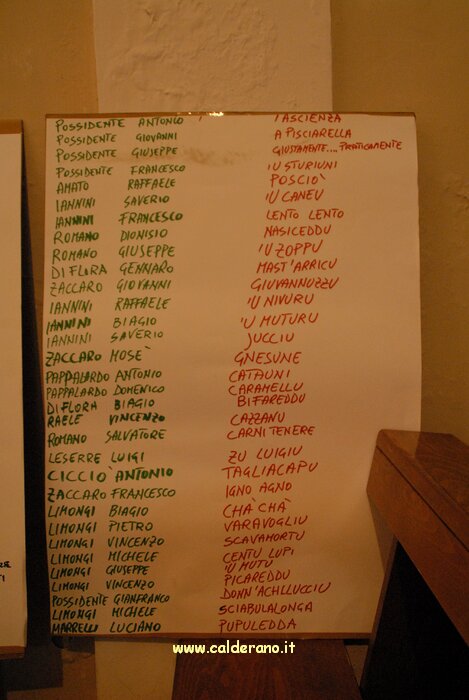 POSSIDENTE ANTONIO 'I ASCIENZA
POSSIDENTE GIOVANNI A PISCIARELLA
POSSIDENTE GIUSEPPE GIUSTAMENTE.... PRATICAMENTE
POSSIDENTE FRANCESCO 'U STURIUNI
AMATO RAFFAELE POSCIO'
IANNINI SAVERIO 'U CANEU
IANNINI FRANCESCO LENTO LENTO
ROMANO DIONISIO NASICEDDU
ROMANO GIUSEPPE 'U ZOPPU
DI FLORA GENNARO MAST'ARRICU
ZACCARO GIOVANNI GIUVANNUZZU
IANNINI RAFFAELE 'U NIVURU
IANNINI BIAGIO 'U MUTURU
IANNINI SAVERIO JUCCIU
ZACCARO MOSE' GNESUNE
PAPPALARDO ANTONIO CATAUNI
PAPPALARDO DOMENICO CARAMELLU
DI FLORA BIAGIO BIFAREDDU
RAELE VINCENZO CAZZANU
ROMANO SALVATORE CARNI TENERE
LESERRE LUIGI ZU LUIGIU
CICCIO' ANTONIO TAGLIACAPU
ZACCARO FRANCESCO IGNO AGNO
LIMONGI BIAGIO CHA' CHA'
LIMONGI PIETRO VARAVOGLIU
LIMONGI VINCENZO SCAVAMORTU
LIMONGI MICHELE CENTU LUPI
LIMONGI GIUSEPPE 'U MUTU
LIMONGI VINCENZO PICAREDDU
POSSIDENTE GIANFRANCO DONN'ACHLLUCCIU
LIMONGI MICHELE SCIABULALONGA
MARRELLI LUCIANO PUPULEDDA
www.calderano.it